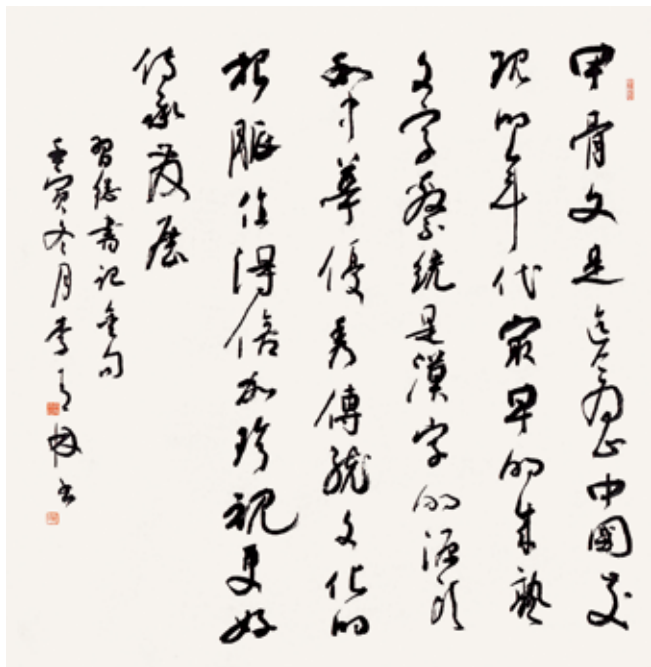 甲骨文是迄今为止中國发
现的年代最早的成熟
文字系統是漢字的源头
和中華優秀傳統文化的
根脈值得倍加珍視更好
传承发展
習總書记金句
壬寅冬月李
书